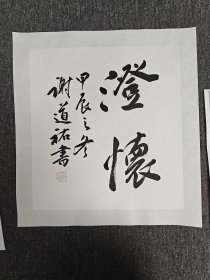 澄懷
甲辰之冬
謝道祐書